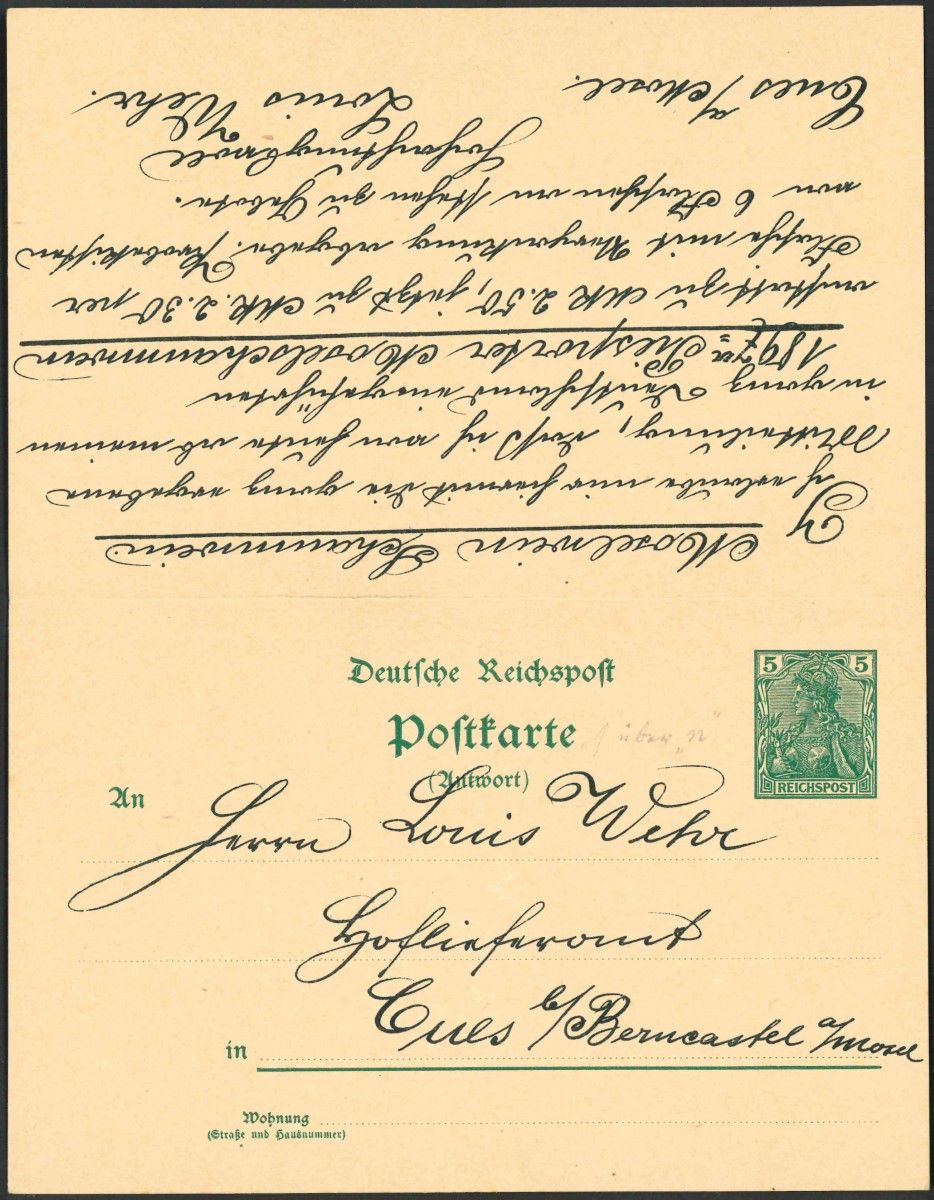 Moselwein Schaumwein
Ich erlaube mir hiermit die ganz ergebene
Mitteilung, daß ich von heute ab meinen
in ganz Deutschland eingeführten
1897er Piesporter Moselschaumwein
anstatt zu MK 2.50, jetzt zu MK. 2.30 per
Flasche mit Verpackung abgebe. Probekisten
von 6 Flaschen an stehen zu Gebote.
Hochachtungsvoll
Cues a/Mosel. Louis Wehr.
Deutsche Reichspost
5 5
REICHSPOST
Postkarte
über "n"
(Antwort)
An Herrn Louis Wehr
Hoflieferant
in Cues b/Berncastel a/Mosel
Wohnung
(Straße und Hausnummer)